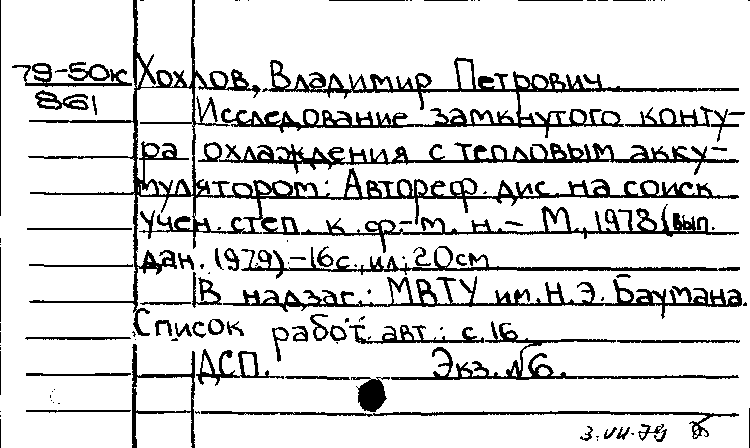 79-50к Хохлов, Владимир Петрович.
861 Исследование замкнутого конту-
ра охлаждения с тепловым акку-
мулятором: Автореф. дис. на соиск
учен. степ. к. ф.-м. н. - М., 1978 (вып.
дан. 1979) - 16 с., ил; 20 см
В надзаг.: МВТУ им. Н. Э. Баумана.
Список работ. авт.: с. 16.
ДСП. Экз. №6.
3.VII.79